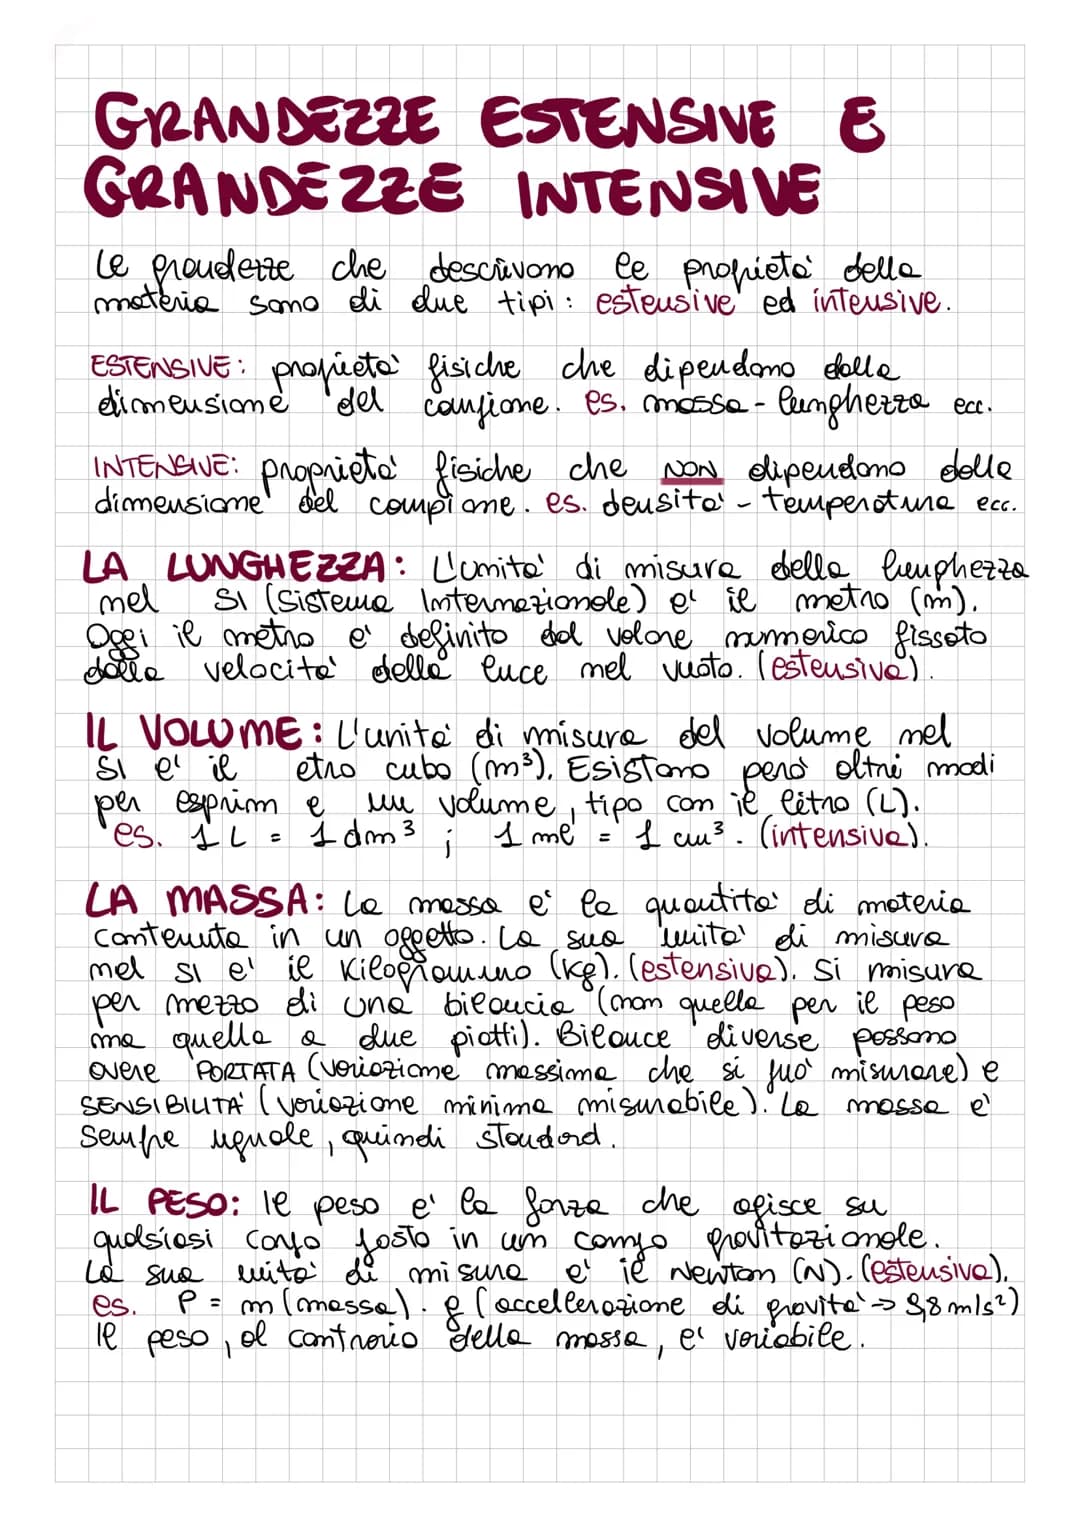 GRANDEZZE ESTENSIVE E
GRANDEZZE INTENSIVE
Le grandezze che descrivono le proprietà della
materia sono di due tipi: estensive ed intensive.
ESTENSIVE: proprietà fisiche che dipendono dalla
dimensione del campione. es. massa - lunghezza ecc.
INTENSIVE: proprietà fisiche che NON dipendono dalla
dimensione del campione. es. densità - temperatura ecc.
LA LUNGHEZZA: L'unità di misura della lunghezza
nel SI (Sistema Internazionale) e' il metro (m).
Oggi il metro e' definito dal valore numerico fissato
dalla velocità della luce nel vuoto. (estensiva).
IL VOLUME: L'unità di misura del volume nel
SI e' il etro cubo (m³). Esistono però altri modi
per esprim e un volume, tipo con il litro (L).
es. 1 L = 1 dm³ ; 1 ml = 1 cm³. (intensiva).
LA MASSA: La massa e' la quantità di materia
contenuta in un oggetto. La sua unità di misura
nel SI e' il Kilogrammo (Kg). (estensiva). Si misura
per mezzo di una bilancia (non quella per il peso
ma quella a due piatti). Bilance diverse possono
avere PORTATA (variazione massima che si può misurare) e
SENSIBILITA' (variazione minima misurabile). La massa e'
sempre uguale, quindi standard.
IL PESO: Il peso e' la forza che agisce su
qualsiasi corpo posto in un campo gravitazionale.
La sua unità di misura e' il Newton (N). (estensiva).
es. P = m (massa) . g (accellerazione di gravità -> 9,8 m/s²)
Il peso, al contrario della massa, e' variabile.